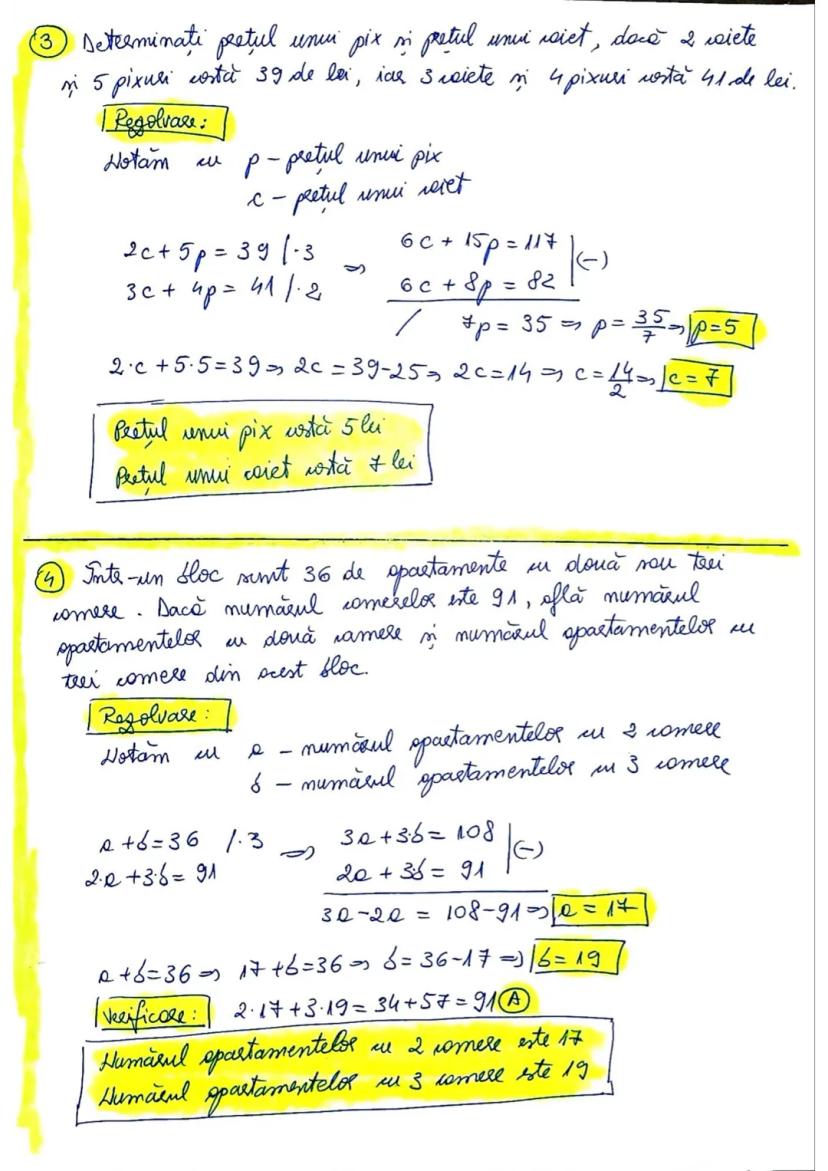 3 Determinați prețul unui pix și prețul unui caiet, dacă 2 caiete
și 5 pixuri costă 39 de lei, iar 3 caiete și 4 pixuri costă 41 de lei.
Rezolvare:
Notăm cu p – prețul unui pix
c – prețul unui caiet
2c + 5p = 39 /·3 ⇒ 6c + 15p = 117 | (-)
3c + 4p = 41 /·2 6c + 8p = 82
/ 7p = 35 ⇒ p = 35/7 ⇒ p = 5
2·c + 5·5 = 39 ⇒ 2c = 39-25 ⇒ 2c = 14 ⇒ c = 14/2 ⇒ c = 7
Prețul unui pix costă 5 lei
Prețul unui caiet costă 7 lei
4 Într-un bloc sunt 36 de apartamente cu două sau trei
camere. Dacă numărul camerelor este 91, află numărul
apartamentelor cu două camere și numărul apartamentelor cu
trei camere din acest bloc.
Rezolvare:
Notăm cu a – numărul apartamentelor cu 2 camere
b – numărul apartamentelor cu 3 camere
a + b = 36 /·3 ⇒ 3a + 3·b = 108 | (-)
2·a + 3·b = 91 2a + 3b = 91
3a - 2a = 108 - 91 ⇒ a = 17
a + b = 36 ⇒ 17 + b = 36 ⇒ b = 36 - 17 ⇒ b = 19
Verificare: 2·17 + 3·19 = 34 + 57 = 91 (A)
Numărul apartamentelor cu 2 camere este 17
Numărul apartamentelor cu 3 camere este 19